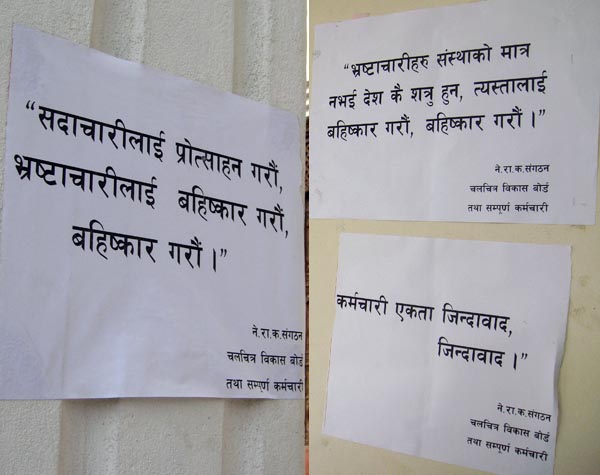 “सदाचारीलाई प्रोत्साहन गरौं,
भ्रष्टाचारीलाई बहिष्कार गरौं,
बहिष्कार गरौं ।”
ने.रा.क.संगठन
चलचित्र विकास बोर्ड
तथा सम्पूर्ण कर्मचारी
“भ्रष्टाचारीहरु संस्थाको मात्र
नभई देश कै शत्रु हुन, त्यस्तालाई
बहिष्कार गरौं, बहिष्कार गरौं ।”
ने.रा.क.संगठन
चलचित्र विकास बोर्ड
तथा सम्पूर्ण कर्मचारी
कर्मचारी एकता जिन्दावाद,
जिन्दावाद ।”
ने.रा.क.संगठन
चलचित्र विकास बोर्ड
तथा सम्पूर्ण कर्मचारी